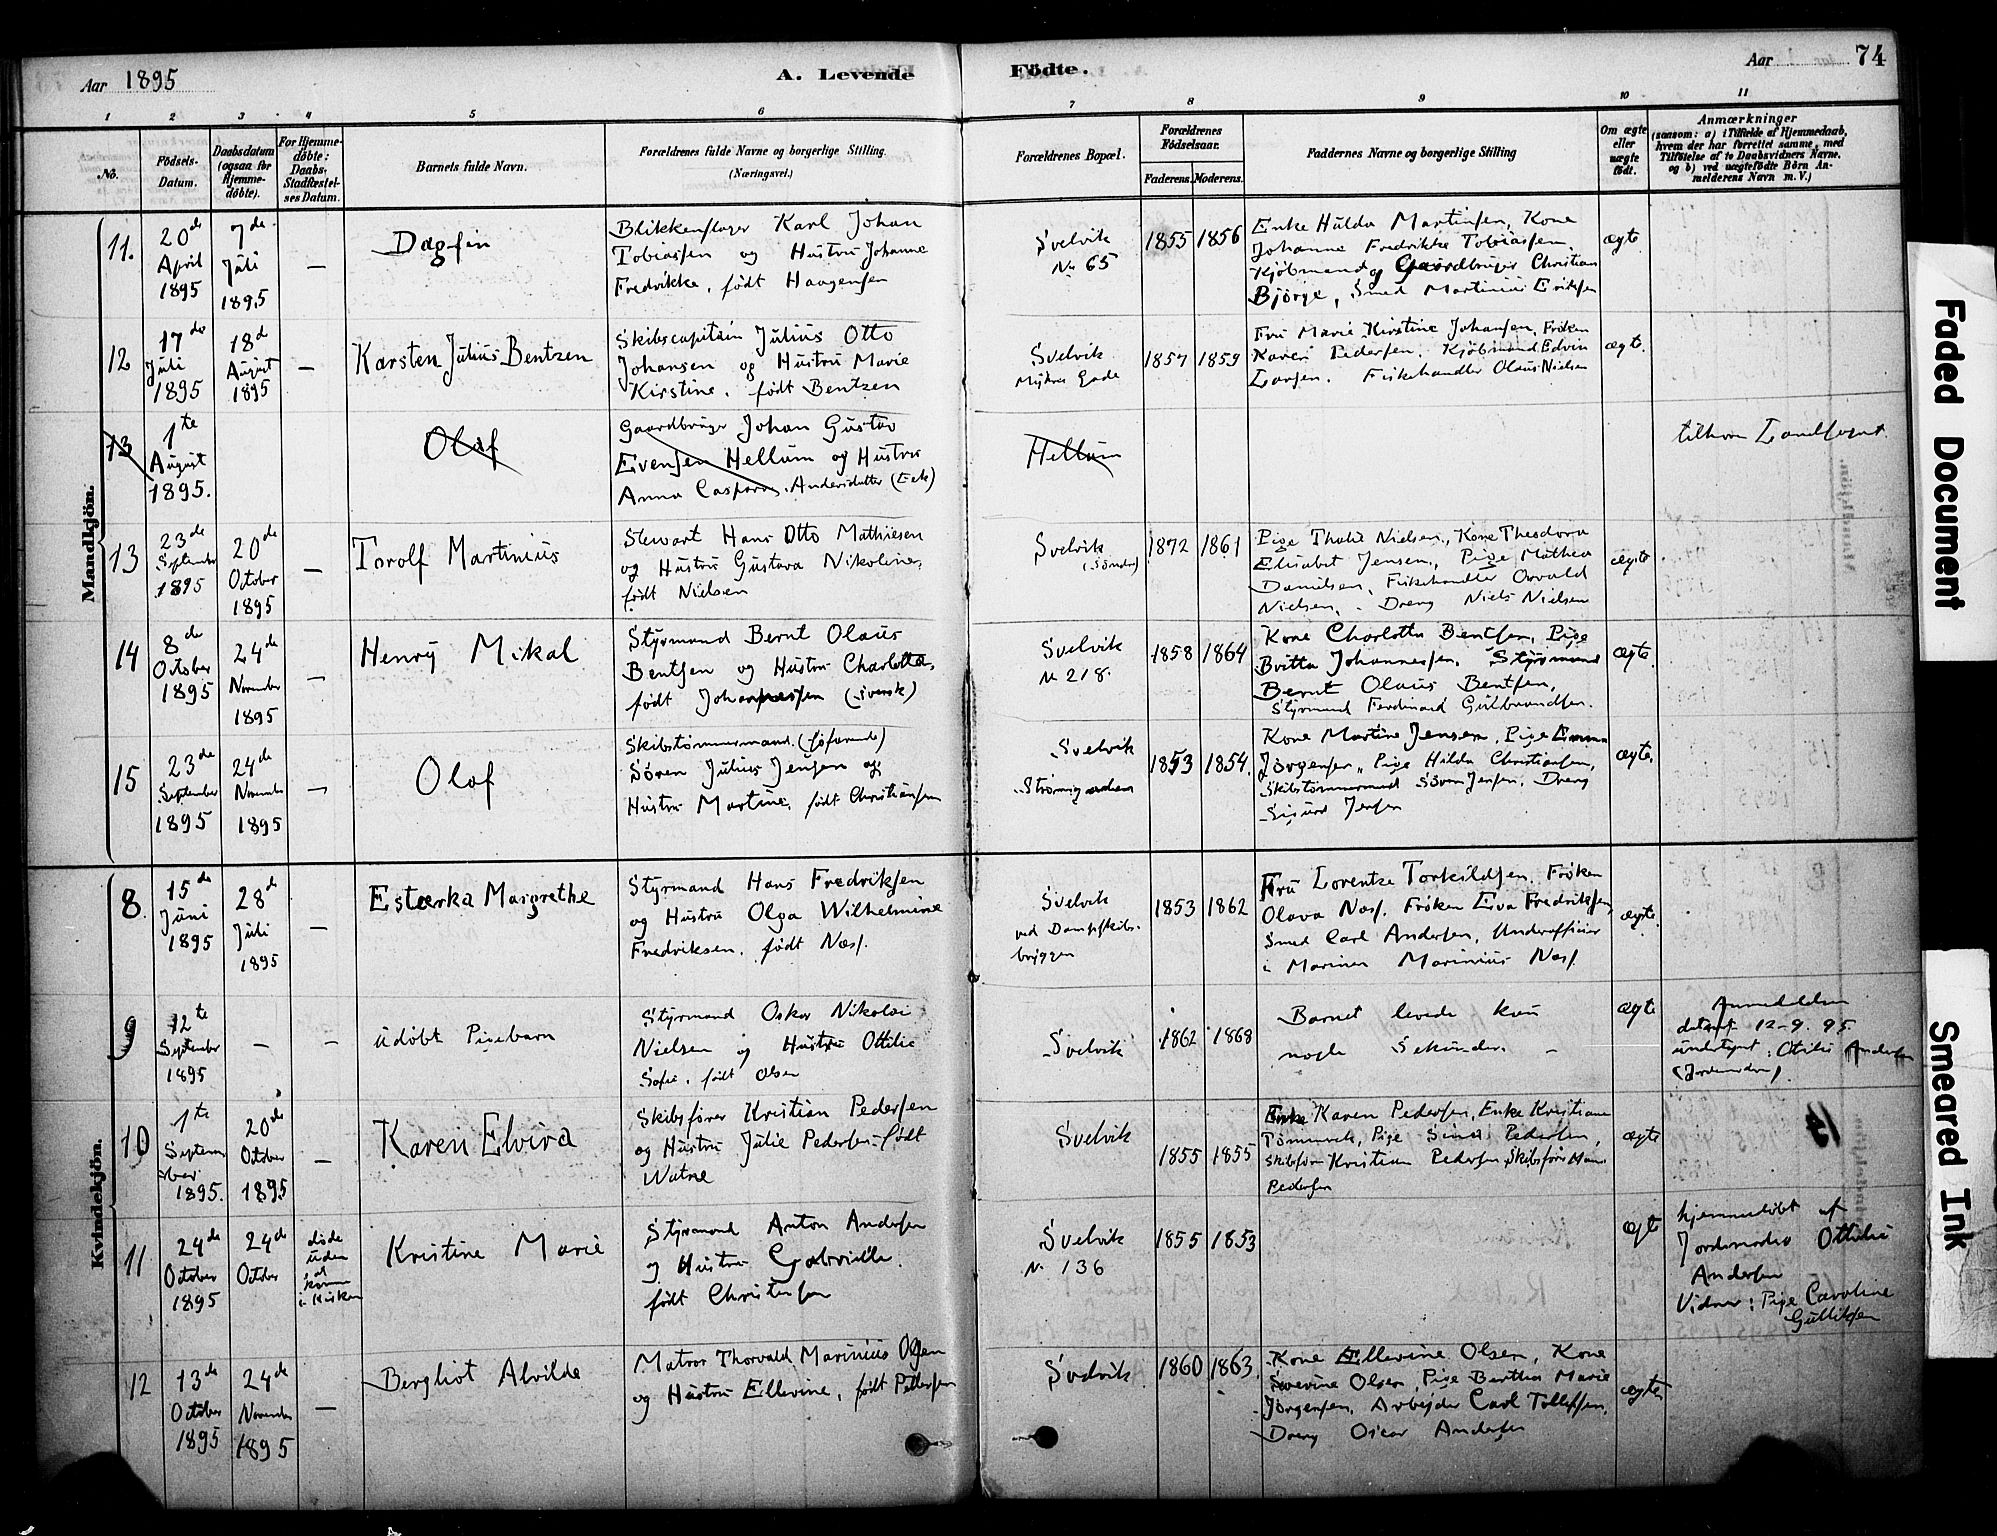 Aar 1895
A. Levende
Fødte.
Aar
74
1
2
3
4
5
6
7
8
9
10
11
No.
Fødsels-
Datum.
Daabsdatum
(ogsaa for
Hjemme-
døbte).
For Hjemme-
døbte:
Daabs-
Stadfæstel-
ses Datum.
Barnets fulde Navn.
Forældrenes fulde Navne og borgerlige Stilling
(Næringsvei.)
Forældrenes Bopæl.
Forældrenes
Fødselsaar.
Faderens.
Moderens.
Faddernes Navne og borgerlige Stilling
Om ægte
eller
uægte
født.
Anmærkninger
(saasom: a) i Tilfælde af Hjemmedaab,
hvem der har forrettet samme, med
Tilføielse af to Daabsvidners Navne,
og b) ved uægtefødte Børn An-
melderens Navn m. V.)
Mandkjøn.
11.
20de
April
1895
7de
Juli
1895
—
Dagfin
Blikkenslager Karl Johan
Tobiassen og Hustru Johanne
Fredrikke, født Haagensen
Svelvik
No 65
1855
1856
Enke Hulda Martinsen, Kone
Johanne Fredrikke Tobiassen,
Kjøbmand og Gaardbruger Christian
Bjørge, Smed Martinius Eriksen
ægte
12
17de
Juli
1895
18d
August
1895
—
Karsten Julius Bentzen
Skibscapitain Julius Otto
Johansen og Hustru Marie
Kirstine, født Bentzen
Svelvik
Gade
1857
1859
Fru Marie Kirstine Johansen, Frøken
Karen Pedersen, Kjøbmand Edvin
Larsen, Fiskehandler Olaus Nielsen
ægte.
13
1te
August
1895.
Olaf
Gaardbruger Johan Gustav
Evensen Hellum og Hustru
Anna Andersdatter
Hellum
tilhører Landsognet.
13
23de
September
1895
20de
October
1895
—
Torolf Martinius
Stewart Hans Otto Mathiesen
og Hustru Gustava Nikoline,
født Nielsen
Svelvik
(Søndre)
1872
1861
Pige Thalie Nielsen, Kone Theodora
Elisabet Jensen, Pige Mathea
Danielsen, Fiskehandler Osvald
Nielsen, Dreng Niels Nielsen
ægte
14
8de
October
1895
24de
November
1895
—
Henry Mikal
Styrmand Bernt Olaus
Bentsen og Hustru Charlotta,
født Johannesen (svensk)
Svelvik
No 218.
1858
1864
Kone Charlotta Bentsen, Pige
Britta Johannesen, Styrmand
Bernt Olaus Bentsen,
Styrmand Ferdinand Gulbrandsen.
ægte
15
23de
September
1895
24de
November
1895
—
Olaf
Skibstømmermand (søfarende)
Søren Julius Jensen og
Hustru Martine, født Christiansen
Svelvik
1853
1854.
Kone Martine Jensen, Pige Emma
Jørgensen, Pige Hilda Christiansen,
Skibstømmermand Søren Jensen, Dreng
Sigurd Jensen
ægte.
Kvindekjøn.
8.
15de
Juni
1895
28d
Juli
1895
—
Esterka Margrethe
Styrmand Hans Fredriksen
og Hustru Olga Wilhelmine
Fredriksen, født Næss.
Svelvik
ved Dampskibs-
bryggen
1853
1862
Fru Lorentze Torkildsen, Frøken
Olava Næss, Frøken Eva Fredriksen,
Smed Carl Andersen, Underofficier
i Marinen Marinius Næss
ægte
9
12te
September
1895
—
—
udøbt Pigebarn
Styrmand Oskar Nikolai
Nielsen og Hustru Ottilie
Sofie, født Olsen
Svelvik
1862
1868
Barnet levede kun
nogle Sekunder. —
ægte
Anmeldelsen
dateret 12-9. 95
undertegnet: Otilie Andersen
(Jordemoder).
10
1te
Septem-
ber
1895.
20de
October
1895
—
Karen Elvira
Skibsfører Kristian Pedersen
og Hustru Julie Pedersen født
Watne
Svelvik
1855
1855
Enke Karen Pedersen, Enke Kristiane
Pige Pedersen,
Skibsfører Kristian Pedersen, Skibsfører
Pedersen
ægte
11
24de
October
1895
24de
October
døde
uden
at
komme
i Kirken
Kristine Marie
Styrmand Anton Andersen
og Hustru Gabrielle
født Christensen
Svelvik
No 136
1855
1853
ægte
hjemmedøbt af
Jordemoder Ottilie
Andersen
Vidner: Pige Caroline
Gulliksen
12
13de
October
1895
24de
November
1895
—
Bergliot Alvilde
Matros Thorvald Marinius Olsen
og Hustru Ellevine, født Pettersen
Svelvik
1860
1863
Kone Ellevine Olsen, Kone
Severine Olsen, Pige Bertha Marie
Jørgensen, Arbejder Carl Tollefsen,
Dreng Oscar Andersen
ægte
Faded Document
Smeared Ink